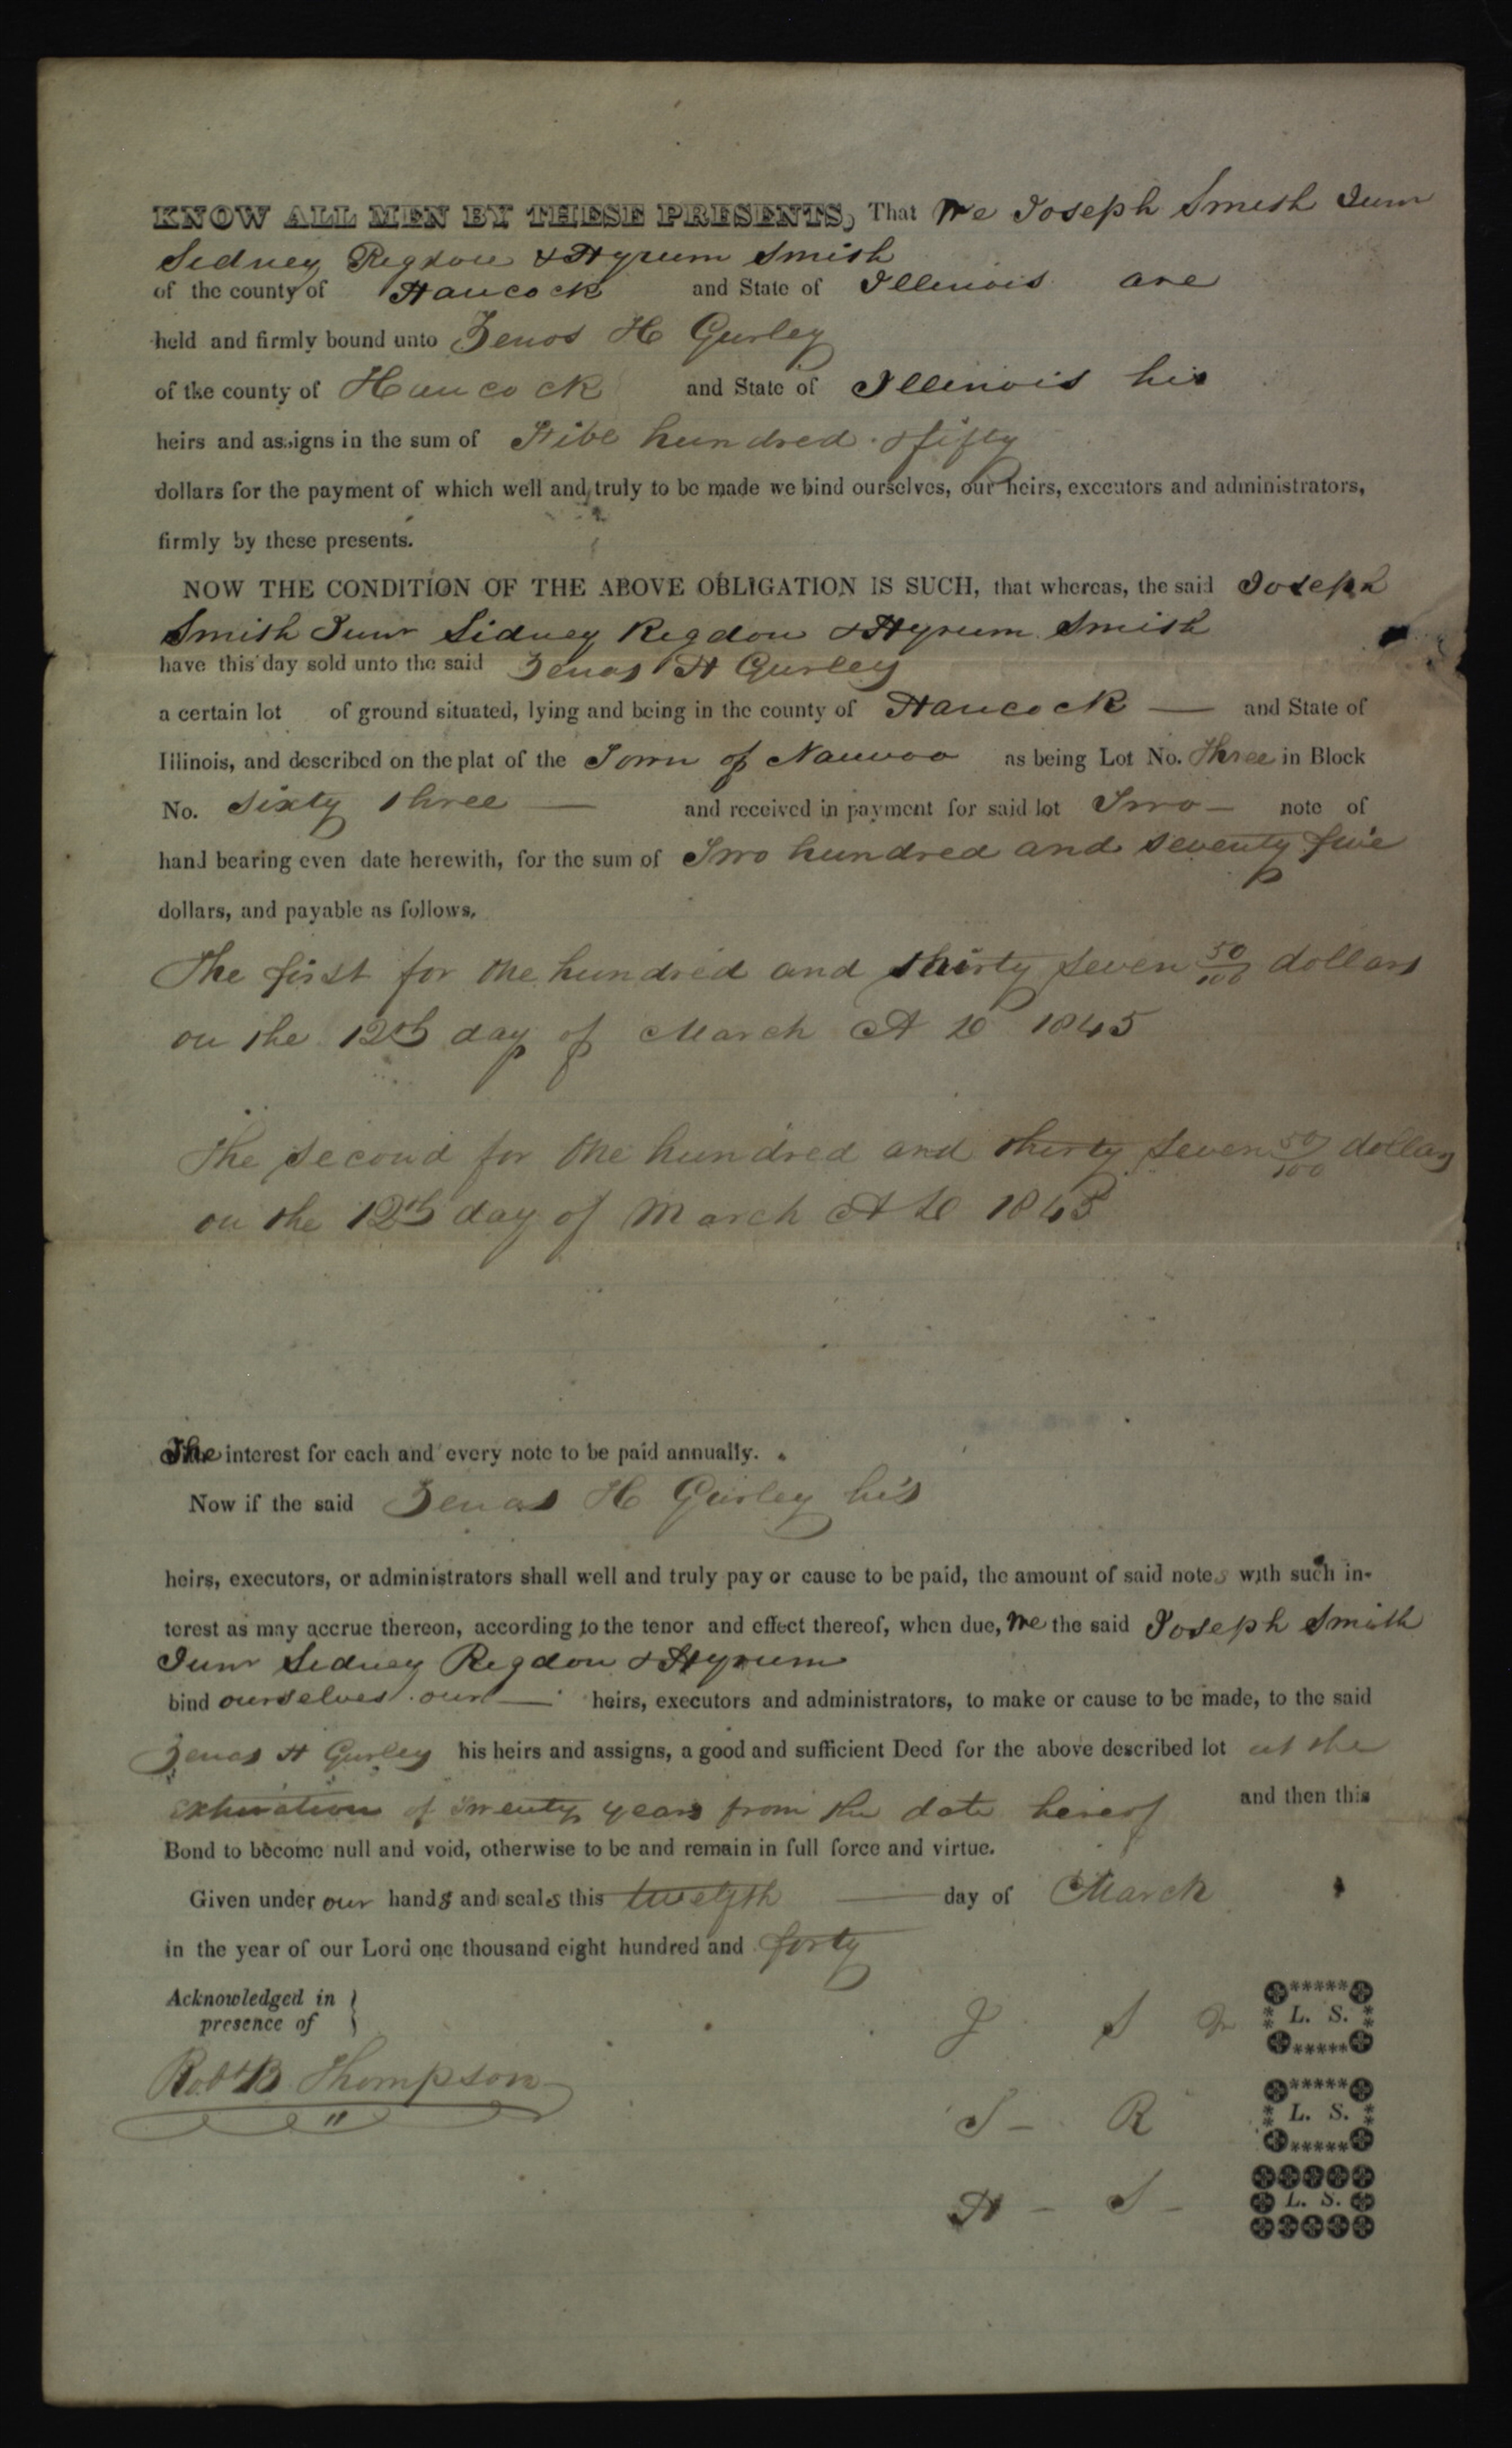 KNOW ALL MEN BY THESE PRESENTS, That We Joseph Smith Junr
Sidney Rigdon & Hyrum Smith
of the county of Hancock and State of Illinois are
held and firmly bound unto Zenos H Gurley
of the county of Hancock and State of Illinois his
heirs and assigns in the sum of Five hundred & fifty
dollars for the payment of which well and truly to be made we bind ourselves, our heirs, executors and administrators,
firmly by these presents.
NOW THE CONDITION OF THE ABOVE OBLIGATION IS SUCH, that whereas, the said Joseph
Smith Junr Sidney Rigdon & Hyrum Smith
have this day sold unto the said Zenos H Gurley
a certain lot of ground situated, lying and being in the county of Hancock — and State of
Illinois, and described on the plat of the Town of Nauvoo as being Lot No. Three in Block
No. Sixty three — and received in payment for said lot Two — note of
hand bearing even date herewith, for the sum of Two hundred and seventy five
dollars, and payable as follows,
The first for One hundred and thirty seven 50/100 dollars
on the 12th day of March A D 1845
The second for One hundred and thirty seven 50/100 dollars
on the 12th day of March A D
The interest for each and every note to be paid annually.
Now if the said Zenas H Gurley his
heirs, executors, or administrators shall well and truly pay or cause to be paid, the amount of said notes with such in-
terest as may accrue thereon, according to the tenor and effect thereof, when due, We the said Joseph Smith
Junr Sidney Rigdon & Hyrum
bind ourselves our — heirs, executors and administrators, to make or cause to be made, to the said
Zenas H Gurley his heirs and assigns, a good and sufficient Deed for the above described lot at the
expiration of Twenty years from the date hereof and then this
Bond to become null and void, otherwise to be and remain in full force and virtue.
Given under our hands and seals this twelfth — day of March
in the year of our Lord one thousand eight hundred and forty
Acknowledged in
presence of
Robt B. Thompson
J S Jr L. S.
S — R L. S.
H — S — L. S.